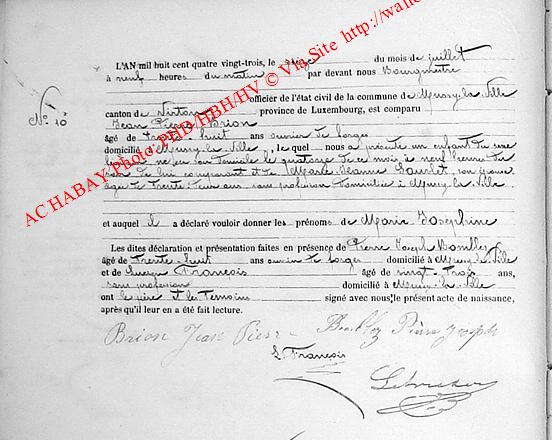 L'AN mil huit cent quatre vingt-trois, le seize du mois de juillet
à neuf heures du matin par devant nous Bourgmestre
officier de l'état civil de la commune de Mussy-la-Ville
canton de Virton province de Luxembourg, est comparu
No. 10
Jean Pierre Brion
âgé de Trente-huit ans ouvrier de forges
domicilié à Mussy-la-Ville, lequel nous a présenté un enfant du sexe
féminin né en son domicile le quatorze de ce mois à neuf heures du
soir de lui comparant et de Marie Jeanne son épouse
âgée de Trente ans sans profession domiciliée à Mussy-la-Ville
et auquel il a déclaré vouloir donner les prénoms de Marie Joséphine
Les dites déclaration et présentation faites en présence de Pierre Joseph
âgé de Trente-huit ans ouvrier de forges domicilié à Mussy-la-Ville
et de François âgé de vingt-trois ans,
sans profession domicilié à Mussy-la-Ville
ont le père et les témoins signé avec nous le présent acte de naissance,
après qu'il leur en a été fait lecture.
Brion Jean Pierre
Pierre Joseph
L. François
AC HABAY Photo: PHD/HBH/HV © Via Site http://wall